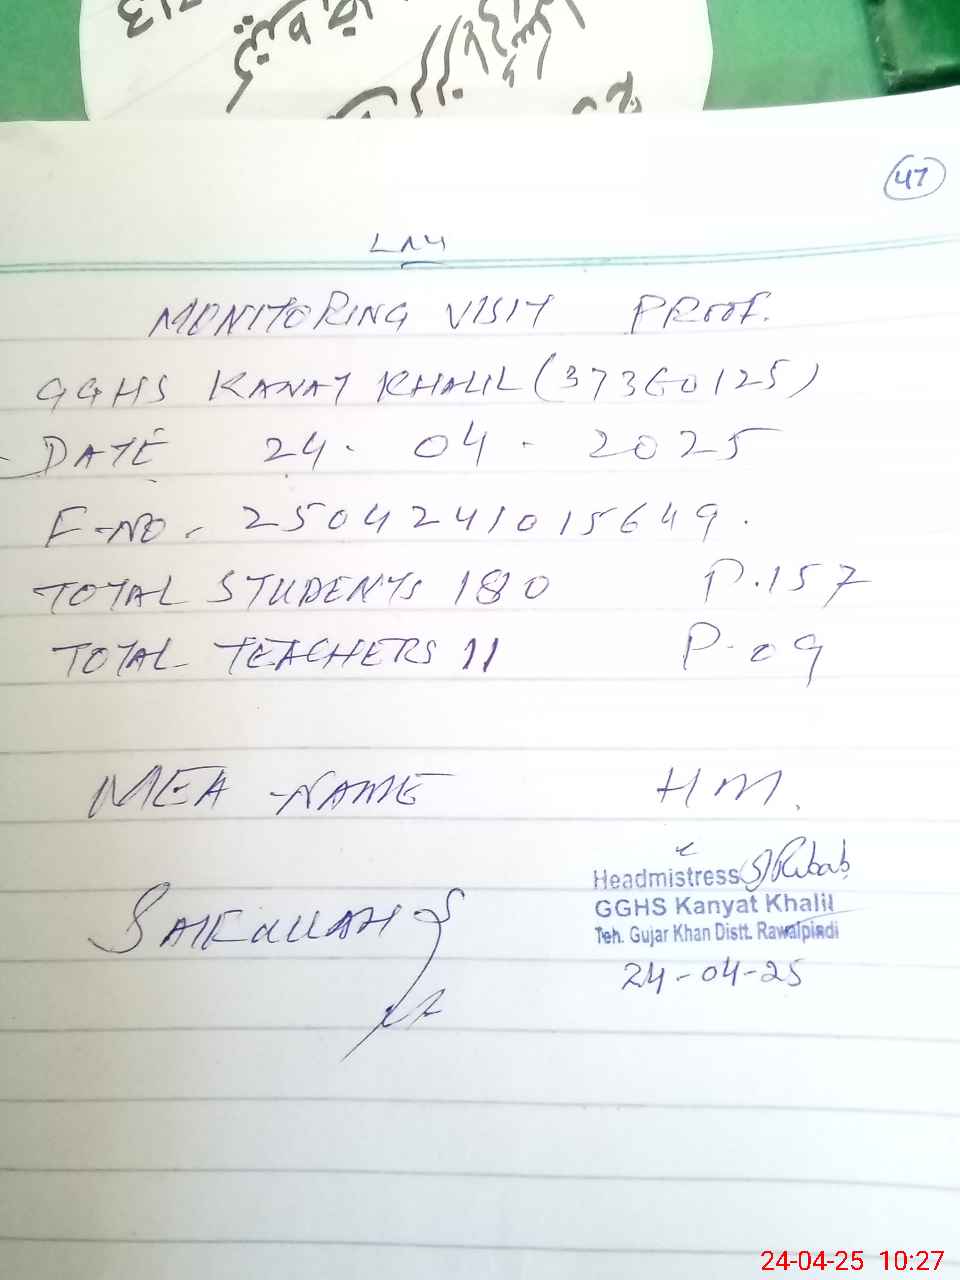 47
MONITORING VISIT PROOF.
GGHS KANAT KHALIL (37360125)
DATE 24. 04. 2025
F-NO. 2504241015649.
TOTAL STUDENTS 180 P.157
TOTAL TEACHERS 11 P.09
MEA NAME HM.
Headmistress
GGHS Kanyat Khalil
Teh. Gujar Khan Distt. Rawalpindi
24-04-25
24-04-25 10:27